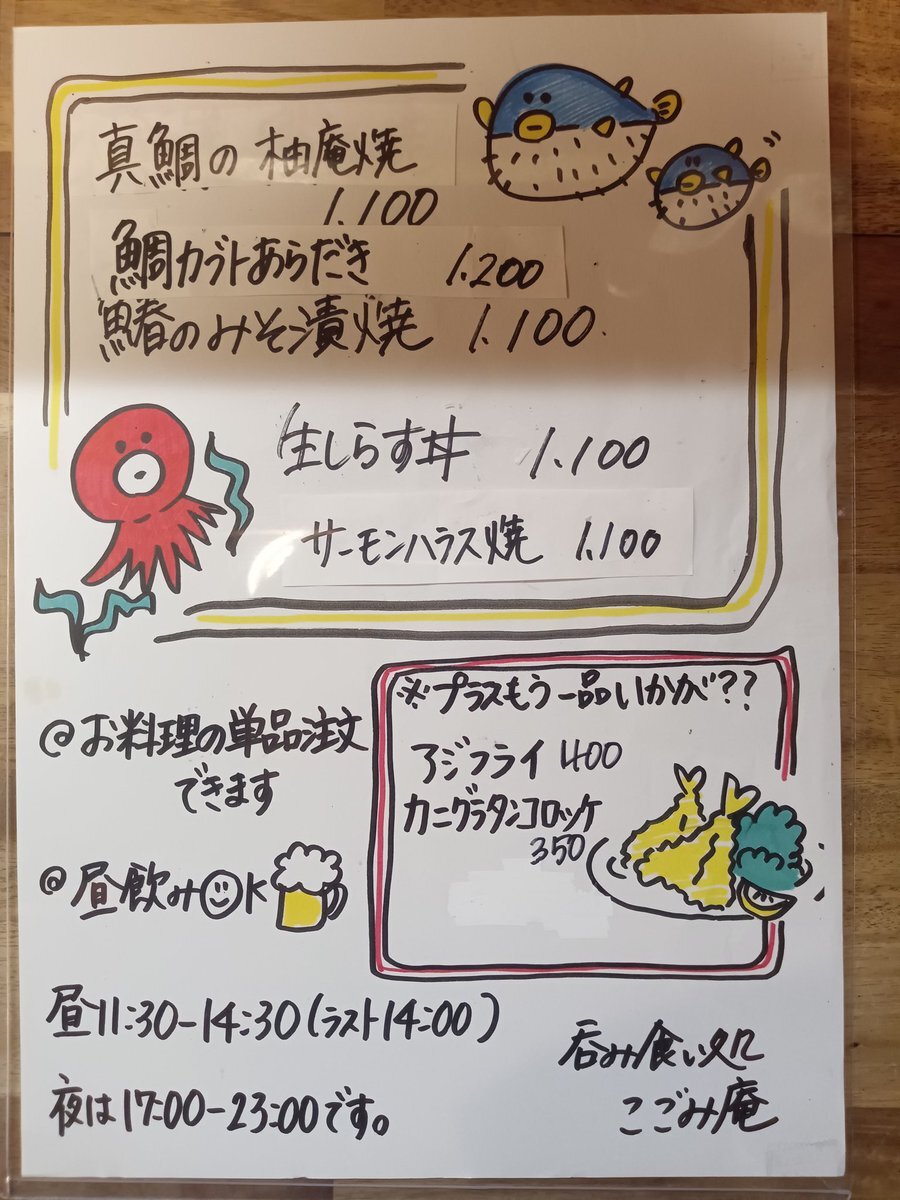 真鯛の柚庵焼
1.100
鯛カブトあらだき 1.200
鰆のみそ漬焼 1.100.
生しらす丼 1.100
サーモンハラス焼 1.100
※プラスもう一品いかが??
アジフライ 400
カニグラタンコロッケ
350
@お料理の単品注文
できます
@昼飲みOK
昼11:30-14:30(ラスト14:00)
夜は17:00-23:00です。
呑み食い処
こごみ庵